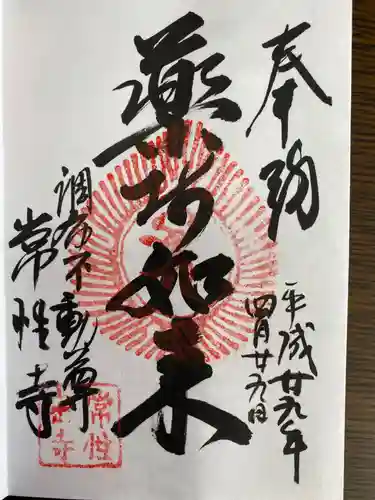 奉拝
平成廿九年
四月廿九日
薬師如来
調布不動尊
常性寺
常性寺